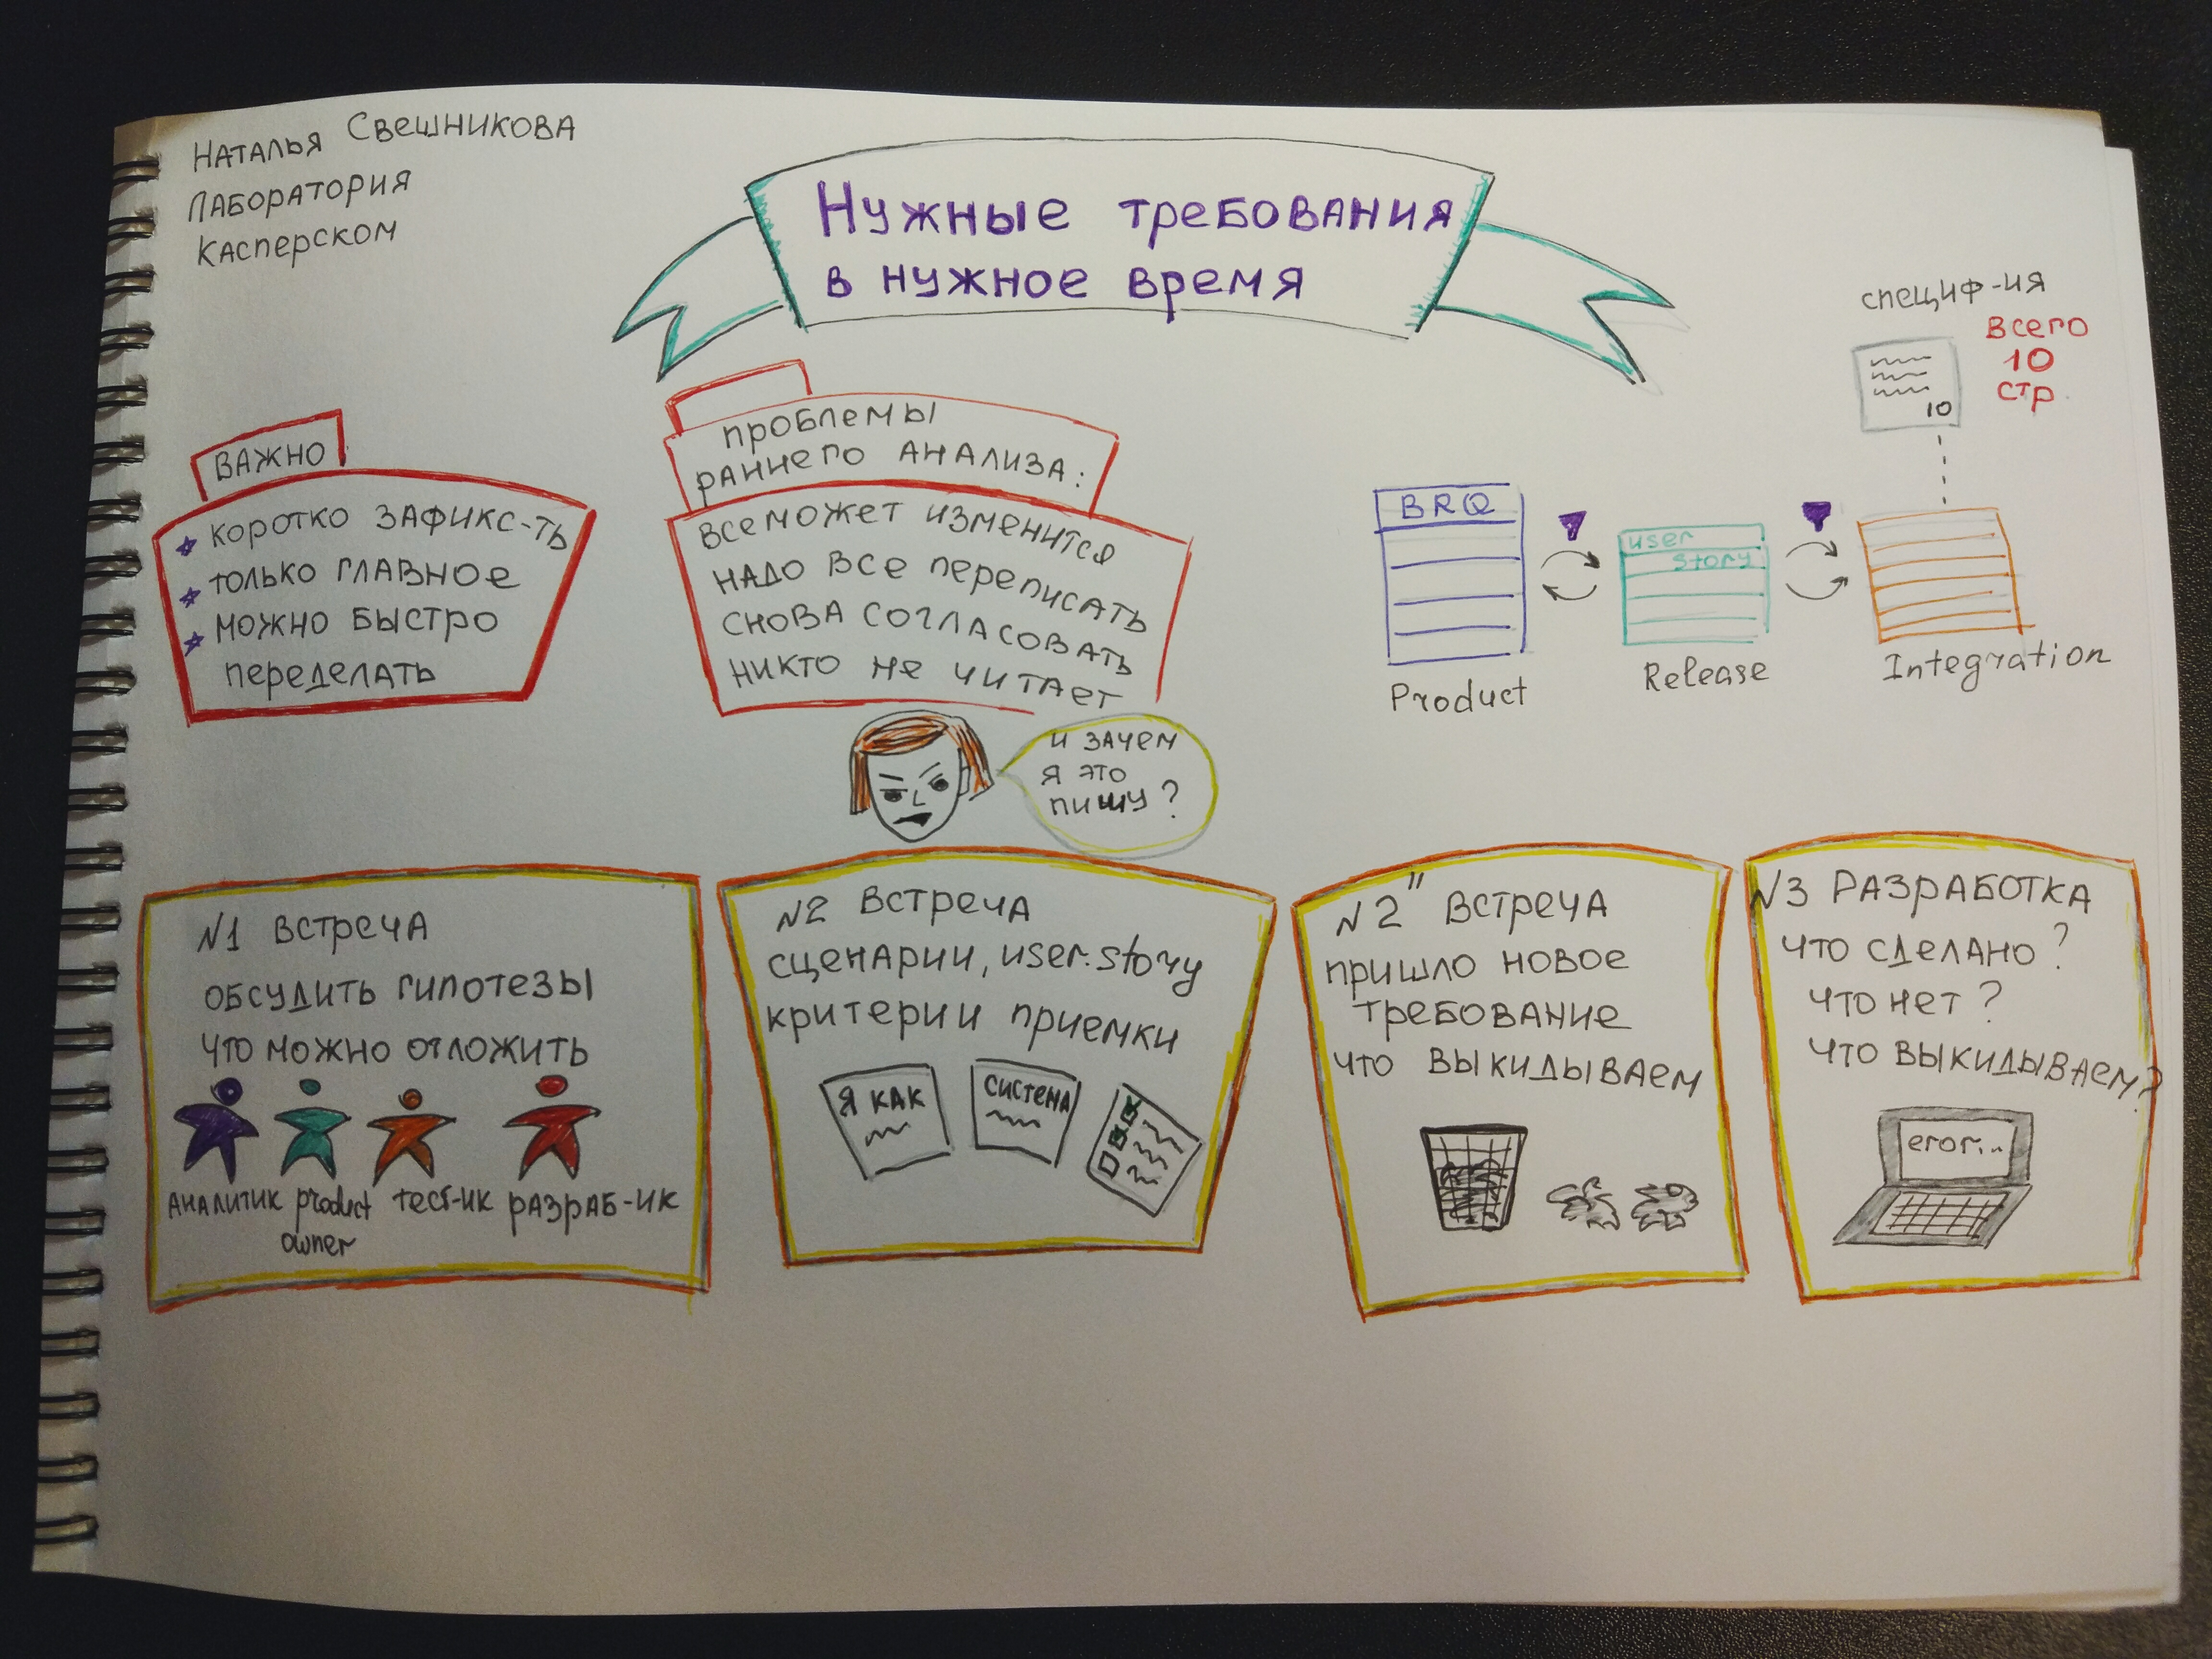 Наталья Свешникова
Лаборатория
Касперском
Нужные требования
в нужное время
специф-ия
всего
10
стр.
10
важно
коротко зафикс-ть
только главное
можно быстро
переделать
проблемы
раннего анализа:
все может изменится
надо все переписать
снова согласовать
никто не читает
и зачем
я это
пишу?
BRQ
user
story
Product
Release
Integration
N1 встреча
обсудить гипотезы
что можно отложить
аналитик product тест-ик разраб-ик
owner
N2 встреча
сценарии, user.story
критерии приемки
я как
система
N2" встреча
пришло новое
требование
что выкидываем
N3 разработка
что сделано?
что нет?
что выкидываем?
eror...